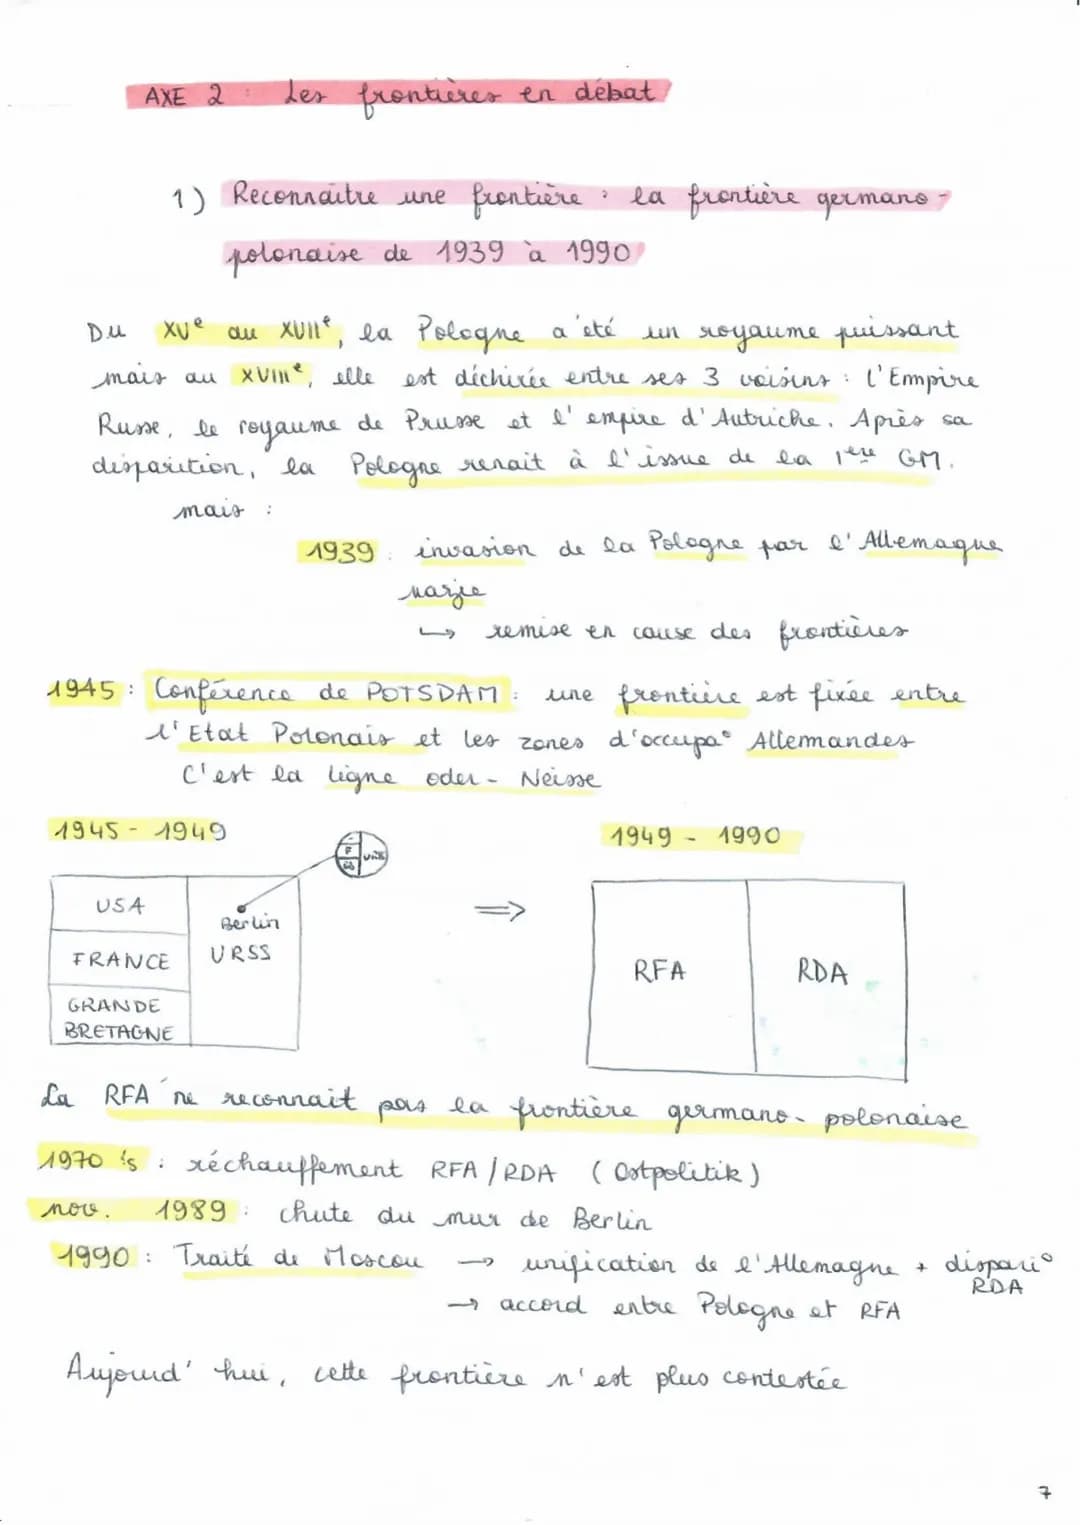 AXE 2 : Les frontières en débat
1) Reconnaitre une frontière : la frontière germano-
polonaise de 1939 à 1990
Du XVe au XVIIe, la Pologne a été un royaume puissant
mais au XVIIIe, elle est déchirée entre ses 3 voisins : l'Empire
Russe, le royaume de Prusse et l'empire d'Autriche. Après sa
disparition, la Pologne renait à l'issue de la 1ère GM.
mais :
1939 : invasion de la Pologne par l'Allemagne
nazie
↳ remise en cause des frontières
1945 : Conférence de POTSDAM : une frontière est fixée entre
l'Etat Polonais et les zones d'occupa° Allemandes
C'est la ligne oder - Neisse
1945 - 1949
1949 - 1990
F
URSS
USA
Berlin
URSS
FRANCE
GRANDE
BRETAGNE
⇒
RFA
RDA
La RFA ne reconnait pas la frontière germano-polonaise
1970's : réchauffement RFA/RDA (Ostpolitik)
nov. 1989 : chute du mur de Berlin
1990 : Traité de Moscou → unification de l'Allemagne + dispari°
RDA
→ accord entre Pologne et RFA
Aujourd'hui, cette frontière n'est plus contestée
7